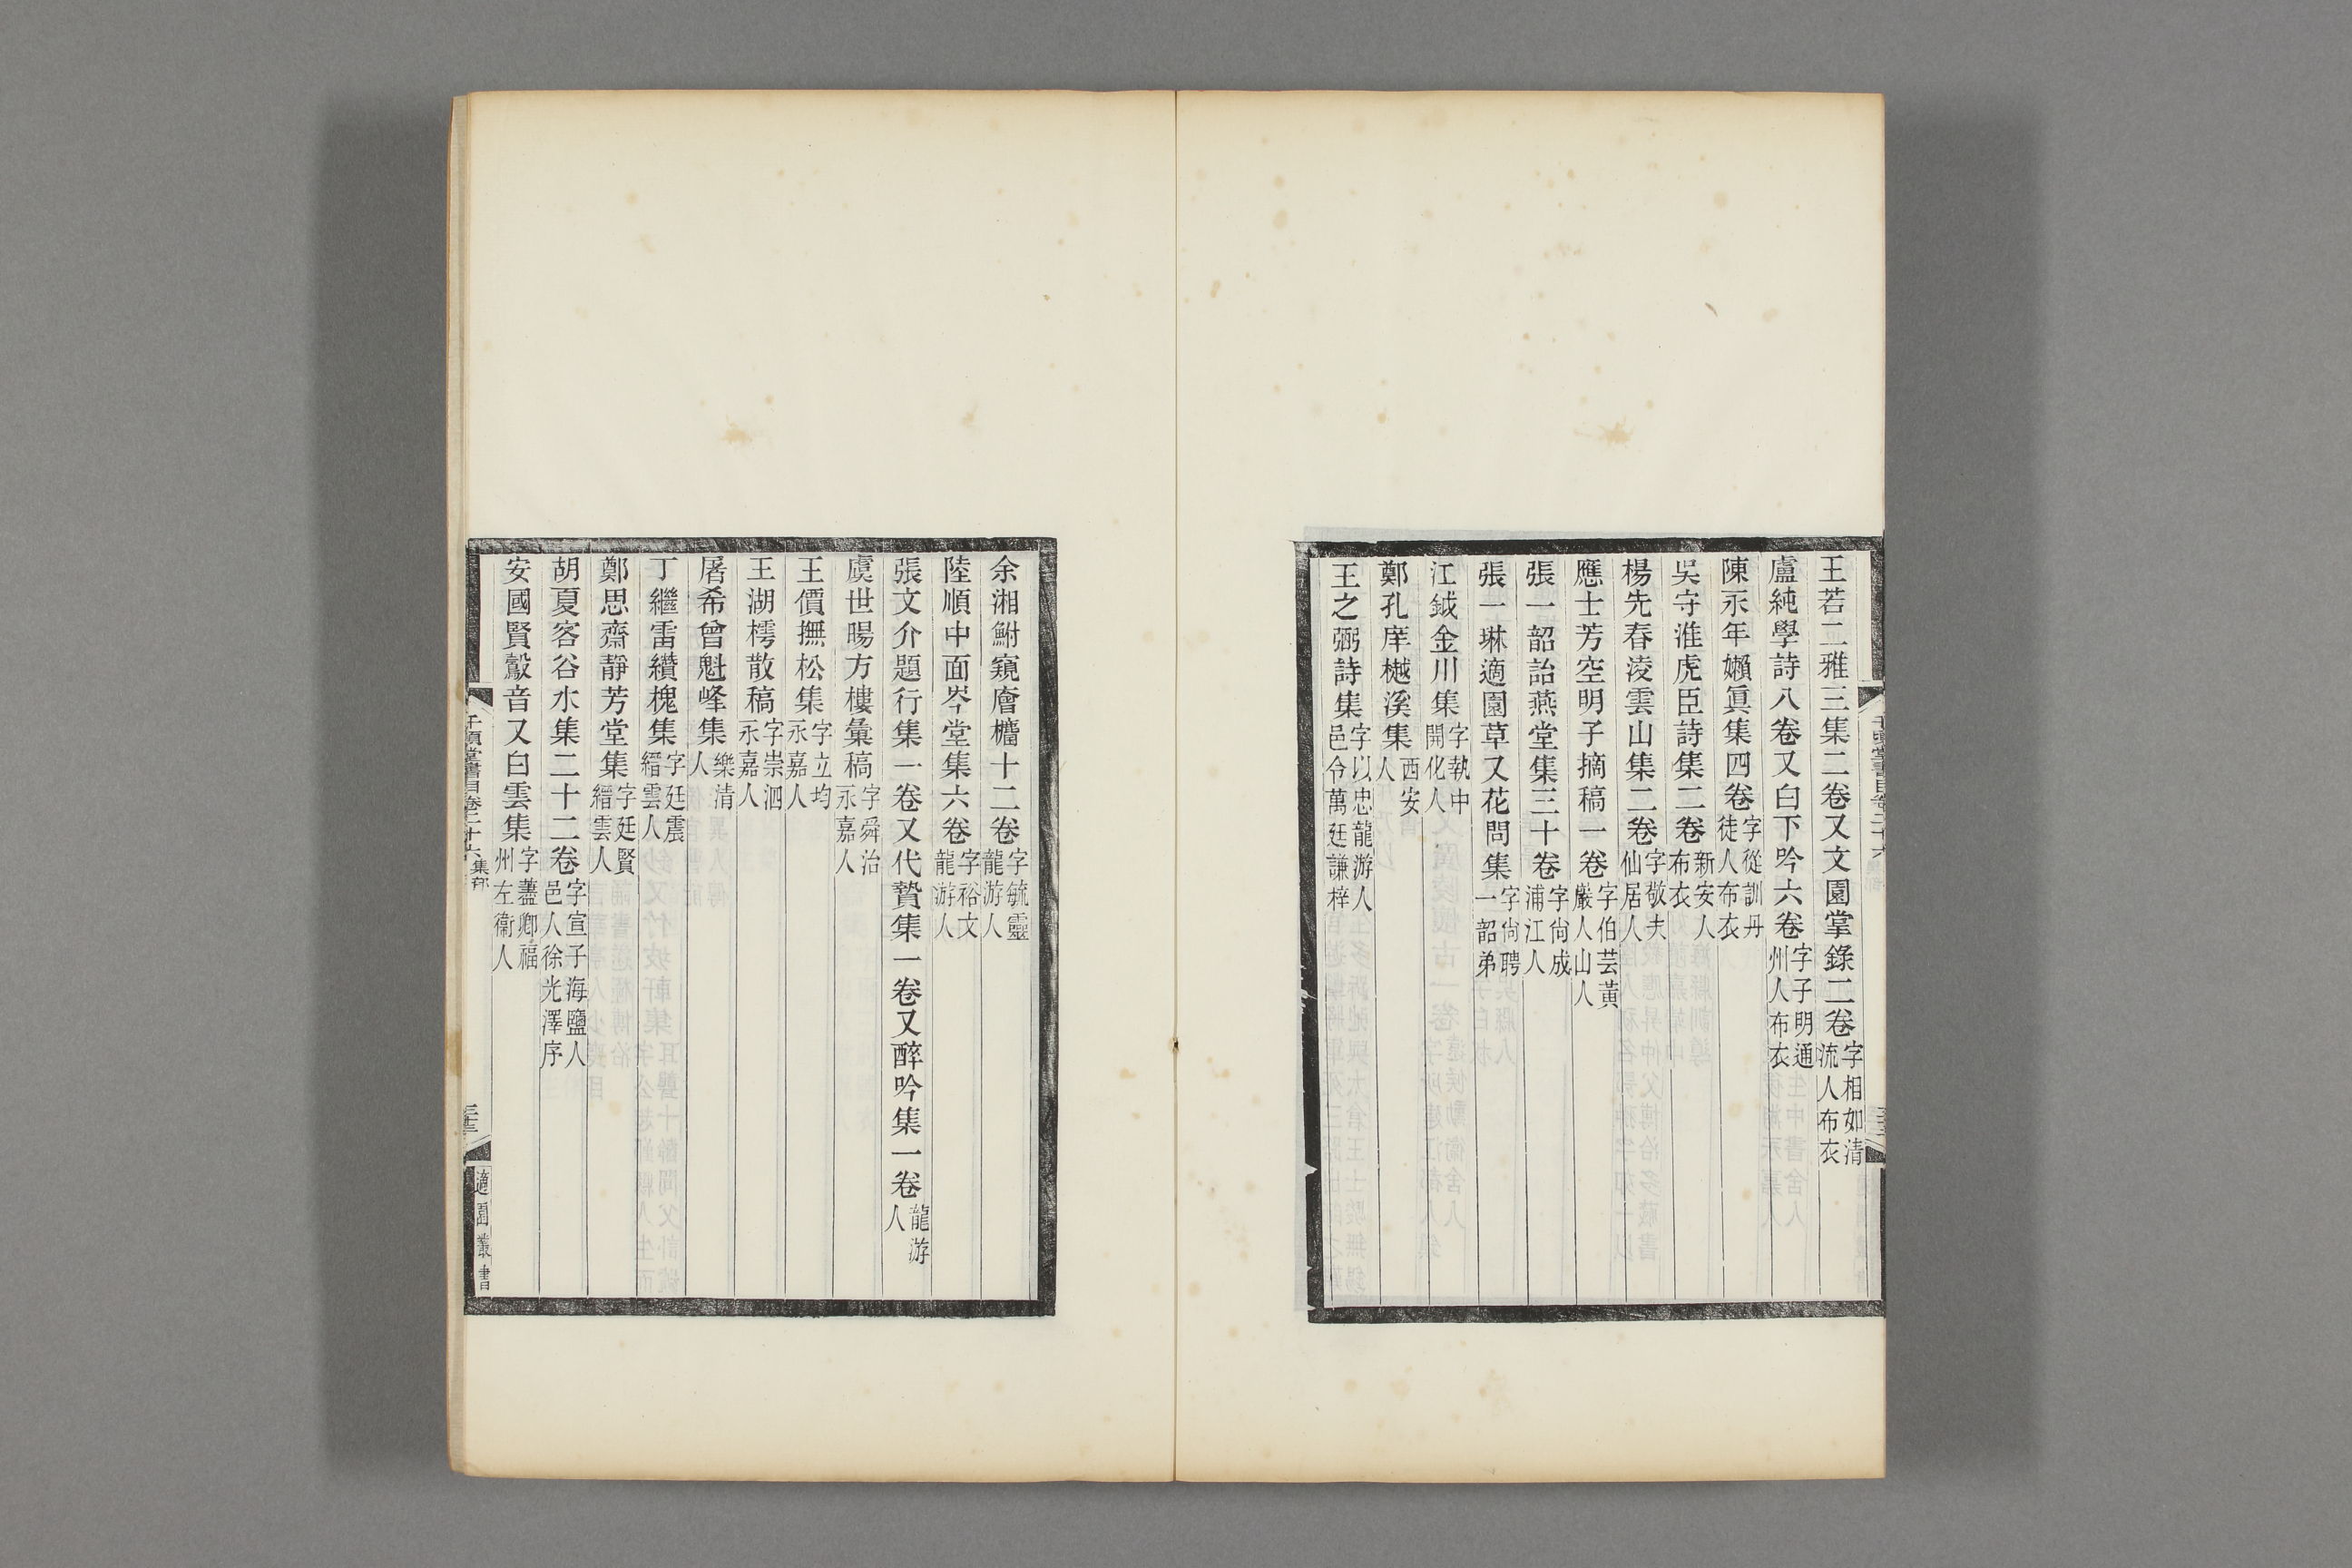 王若二雅三集二卷又文園掌錄二卷字相如清流人布衣
盧純學詩八卷又白下吟六卷字子明通州人布衣
陳永年嬾眞集四卷字從訓丹徒人布衣
吳守淮虎臣詩集二卷新安人布衣
楊先春淩雲山集二卷字敬夫仙居人
應士芳空明子摘稿一卷字伯芸黃巖人山人
張一韶詒燕堂集三十卷字尙成浦江人
張一琳適園草又花問集字尙聘一韶弟
江鉞金川集字執中開化人
鄭孔庠樾溪集西安人
王之弼詩集字以忠龍游人邑令萬廷謙梓
余湘鮒窺廥櫧十二卷字毓靈龍游人
陸順中面岑堂集六卷字裕文龍游人
張文介題行集一卷又代贄集一卷又醉吟集一卷龍游人
虞世暘方樓彙稿字舜治永嘉人
王價撫松集字立均永嘉人
王湖樗散稿字崇泗永嘉人
屠希曾魁峰集樂清人
丁繼雷纘槐集字廷震縉雲人
鄭思齋靜芳堂集字廷賢縉雲人
胡夏客谷水集二十二卷字宣子海鹽人邑人徐光澤序
安國賢鷇音又白雲集字藎卿福州左衞人
千頃堂書目卷二十六 集部
適園叢書